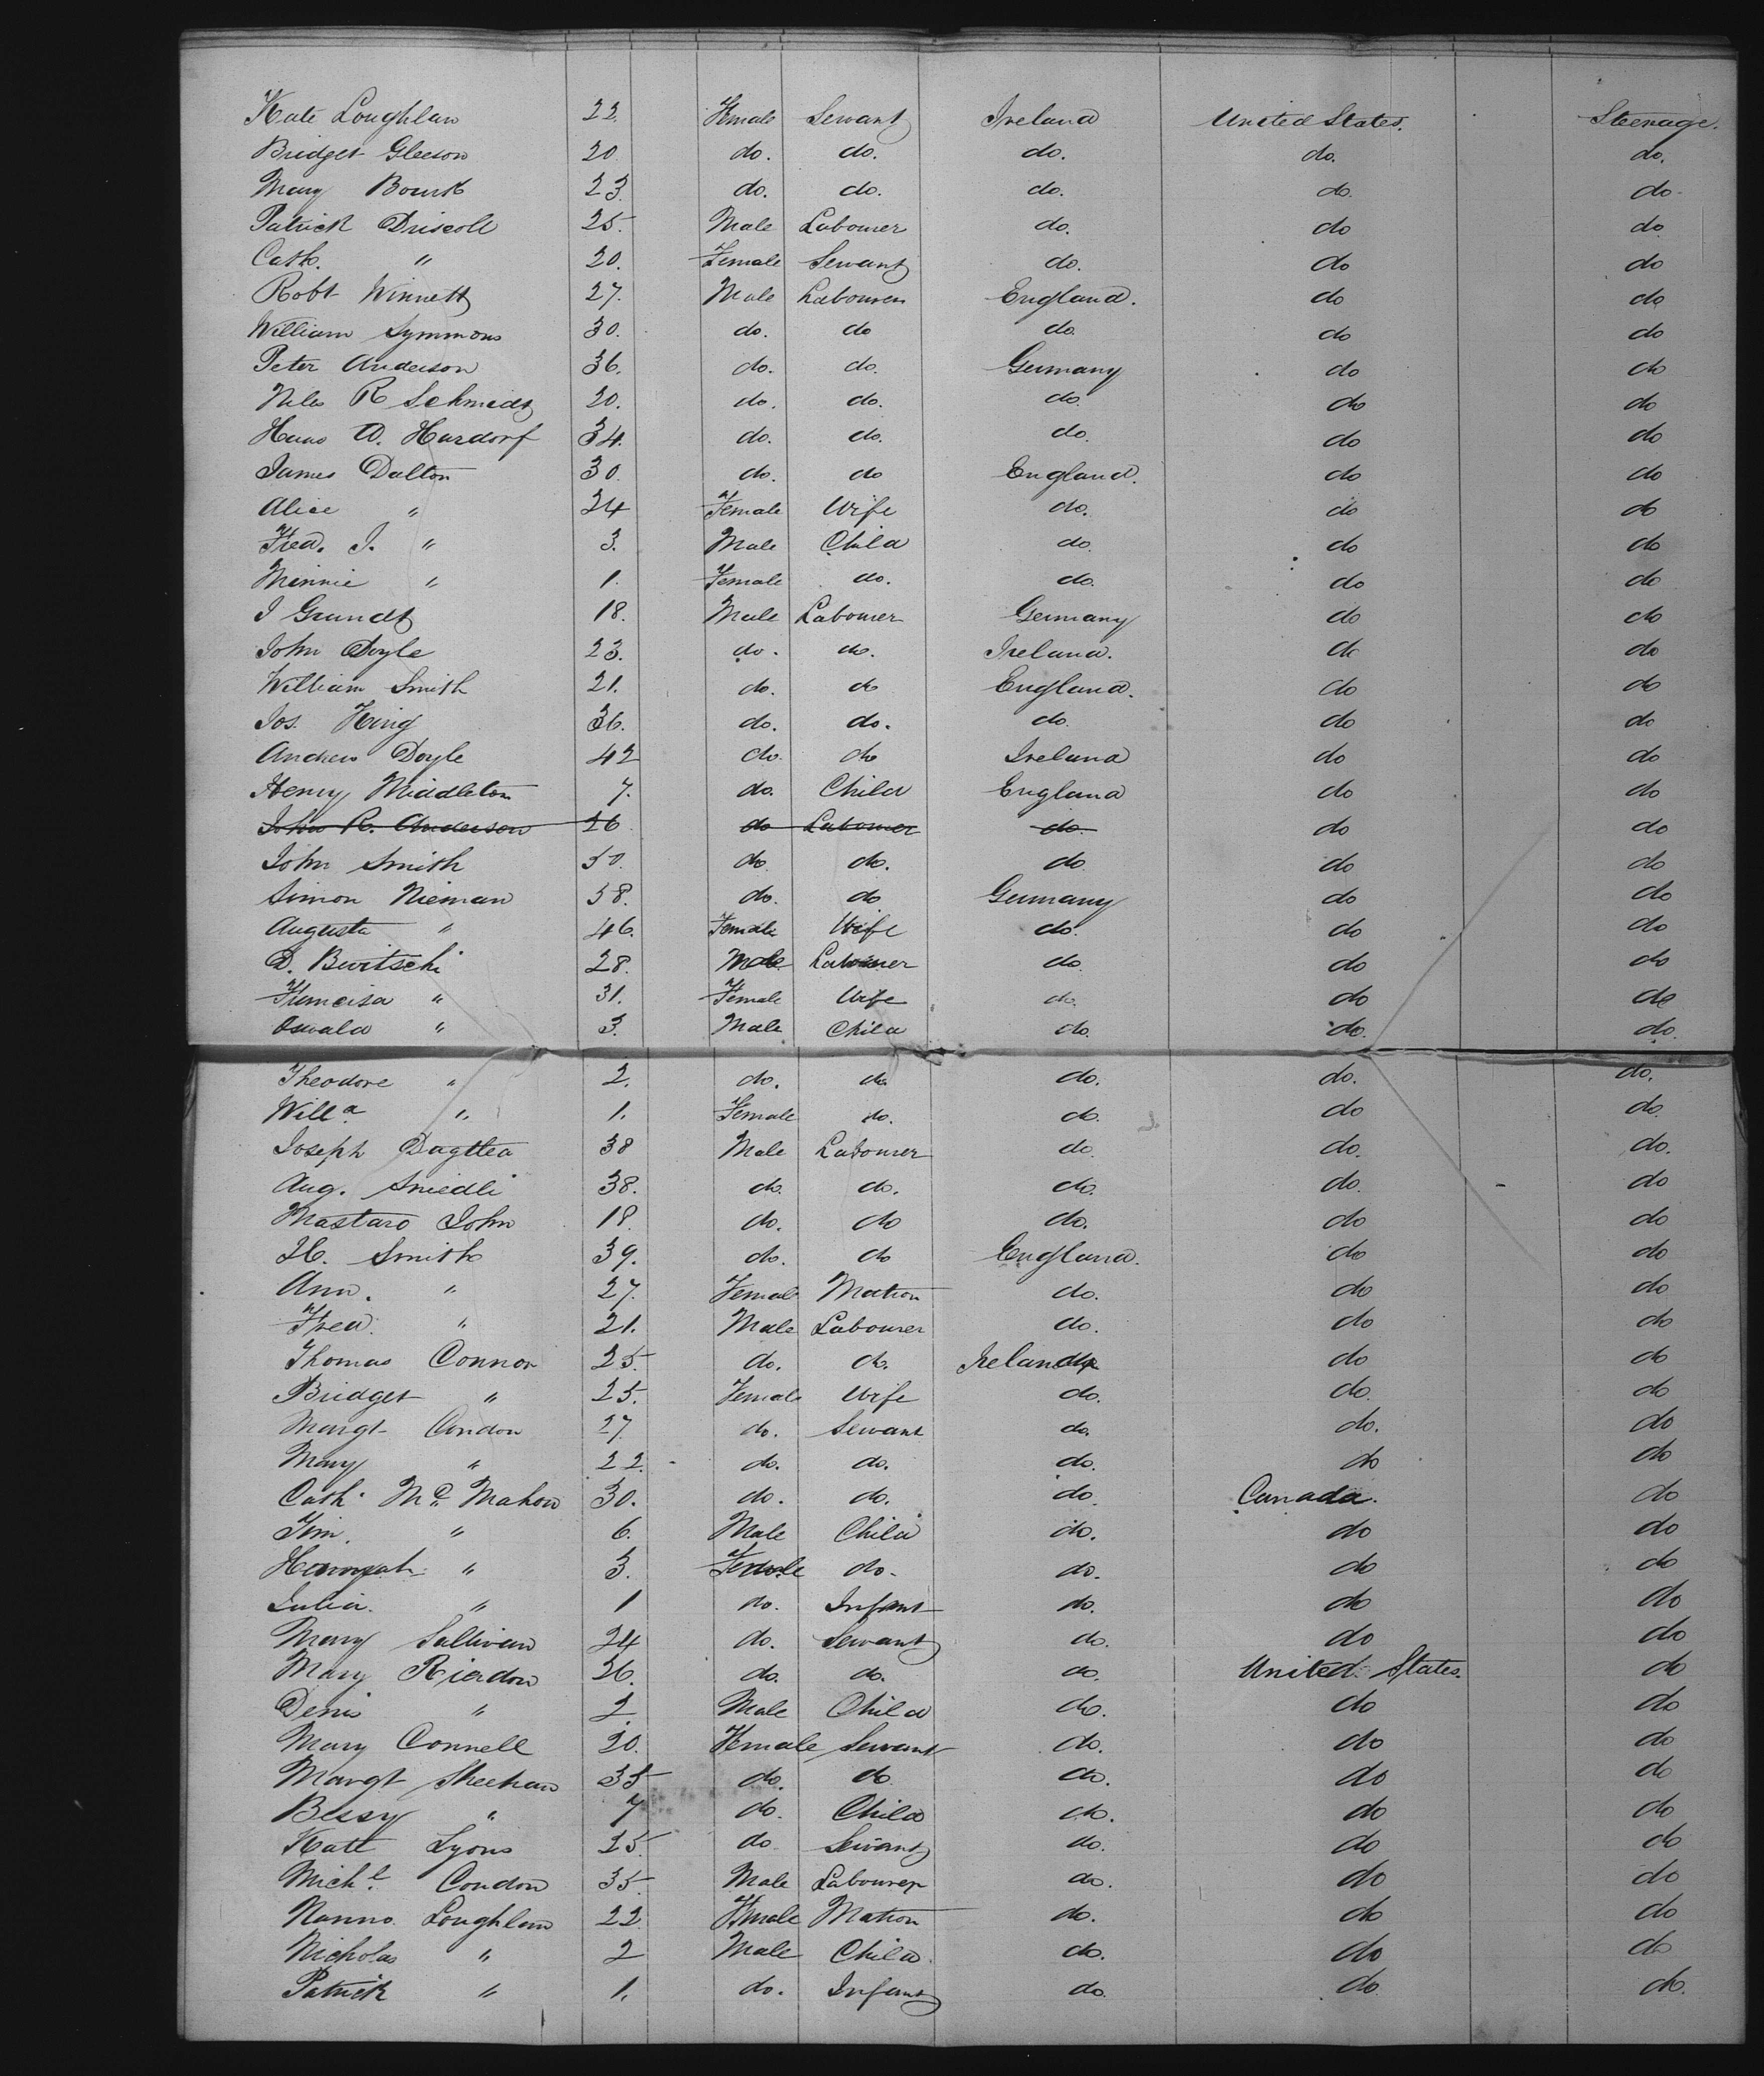 Kate Loughlan 22. Female Servant Ireland United States. Steerage.
Bridget Gleeson 20 do. do. do. do. do.
Mary Bourk 23 do. do. do. do. do.
Patrick Driscoll 25. Male Labourer do. do do
Cath. " 20. Female Servant do. do do
Robt Winnett 27. Male Labourer England. do do
William Symmons 30. do. do do. do do
Peter Anderson 36. do. do. Germany do do
Niles R Schmidt 20. do. do. do do do
Hans A. Hardorf 34. do. do. do. do do
James Dalton 30. do. do England. do do
Alice " 24 Female Wife do. do do
Fred. J. " 3. Male Child do. do do
Minnie " 1. Female do. do. do do
J Grundt 18. Male Labourer Germany do do
John Doyle 23. do. do. Ireland. do do
William Smith 21. do. do England. do do
Jos. King 36. do. do. do. do do
Andrew Doyle 42 do. do Ireland do do
Henry Middleton 7. do. Child England do do
John R. Anderson 26 do Labourer do do do
John Smith 50. do do. do do do
Simon Nieman 58. do. do Germany do do
Augusta " 46. Female Wife do. do do
D. Buitschi 28. Male Labourer do do do
" 31. Female Wife do. do do
Oswald " 3. Male Child do. do. do.
Theodore " 2. do. do do. do. do.
Will.a " 1. Female do. do. do do.
Joseph 38 Male Labourer do. do. do.
Aug. Sniedli 38. do. do. do. do. do
Mastaro John 18. do. do do. do do
H. Smith 39. do. do England. do do
Ann. " 27. Female Matron do. do do
Fred. " 21. Male Labourer do. do do
Thomas Connor 25. do. do. Ireland do do
Bridget " 25. Female Wife do. do. do
Margt Condon 27 do. Servant do. do. do
Mary " 22. do. do. do. do do
Cath. Mc Mahon 30. do. do. do Canada. do
Jim. " 6. Male Child do. do do
Hannah " 3. Female do. do. do do
Julia. " 1 do. Infant do. do do
Mary Sullivan 24 do. Servant do. do do
Mary Riordon 26. do. do. do. United States. do
Denis " 2 Male Child do. do do
Mary Connell 20. Female Servant do. do do
Margt Sheehan 35 do. do do. do do
Bessy " 7 do. Child do. do do
Kate Lyons 25. do Servant do. do do
Michl. Condon 35. Male Labourer do. do do
Nanno Loughlan 22. Female Matron do. do do
Nicholas " 2 Male Child do. do do
Patrick " 1. do. Infant do. do do.